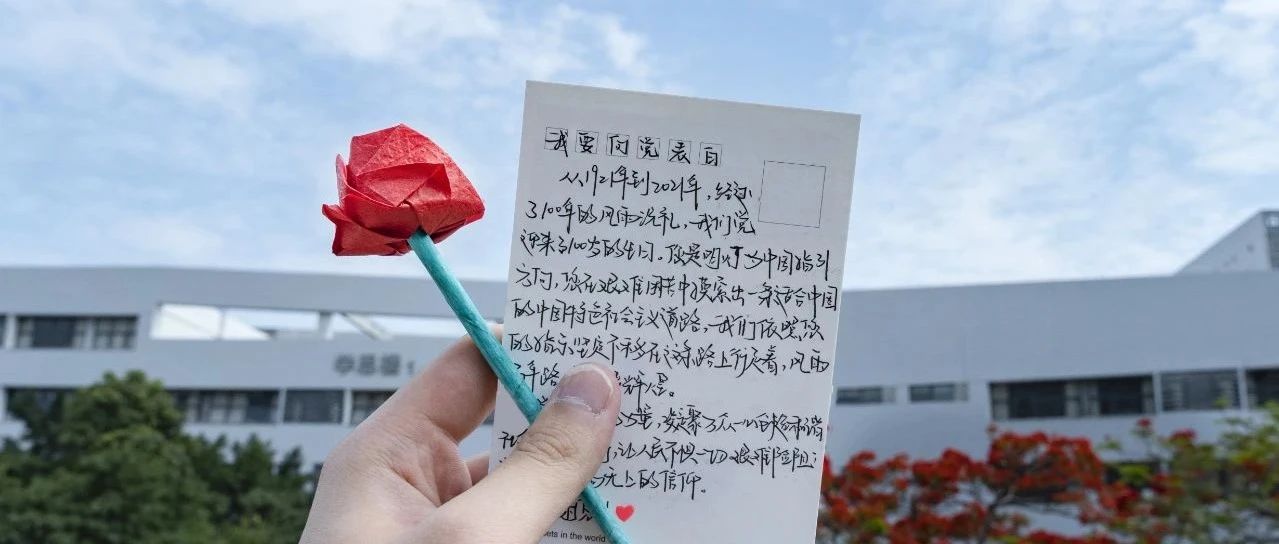 我要向党表白
从1921年到2021年，经过
了100年的风雨洗礼，我们党
迎来了100岁的生日。您是明灯为中国指引
方向，您在艰难困苦中摸索出一条适合中国
的中国特色社会主义道路，我们依照您
的指示坚定不移在这条路上行走着，风雨
兼路
凝聚万众一心的
让人民不惧一切艰难险阻
无上的信仰。
ets in the world